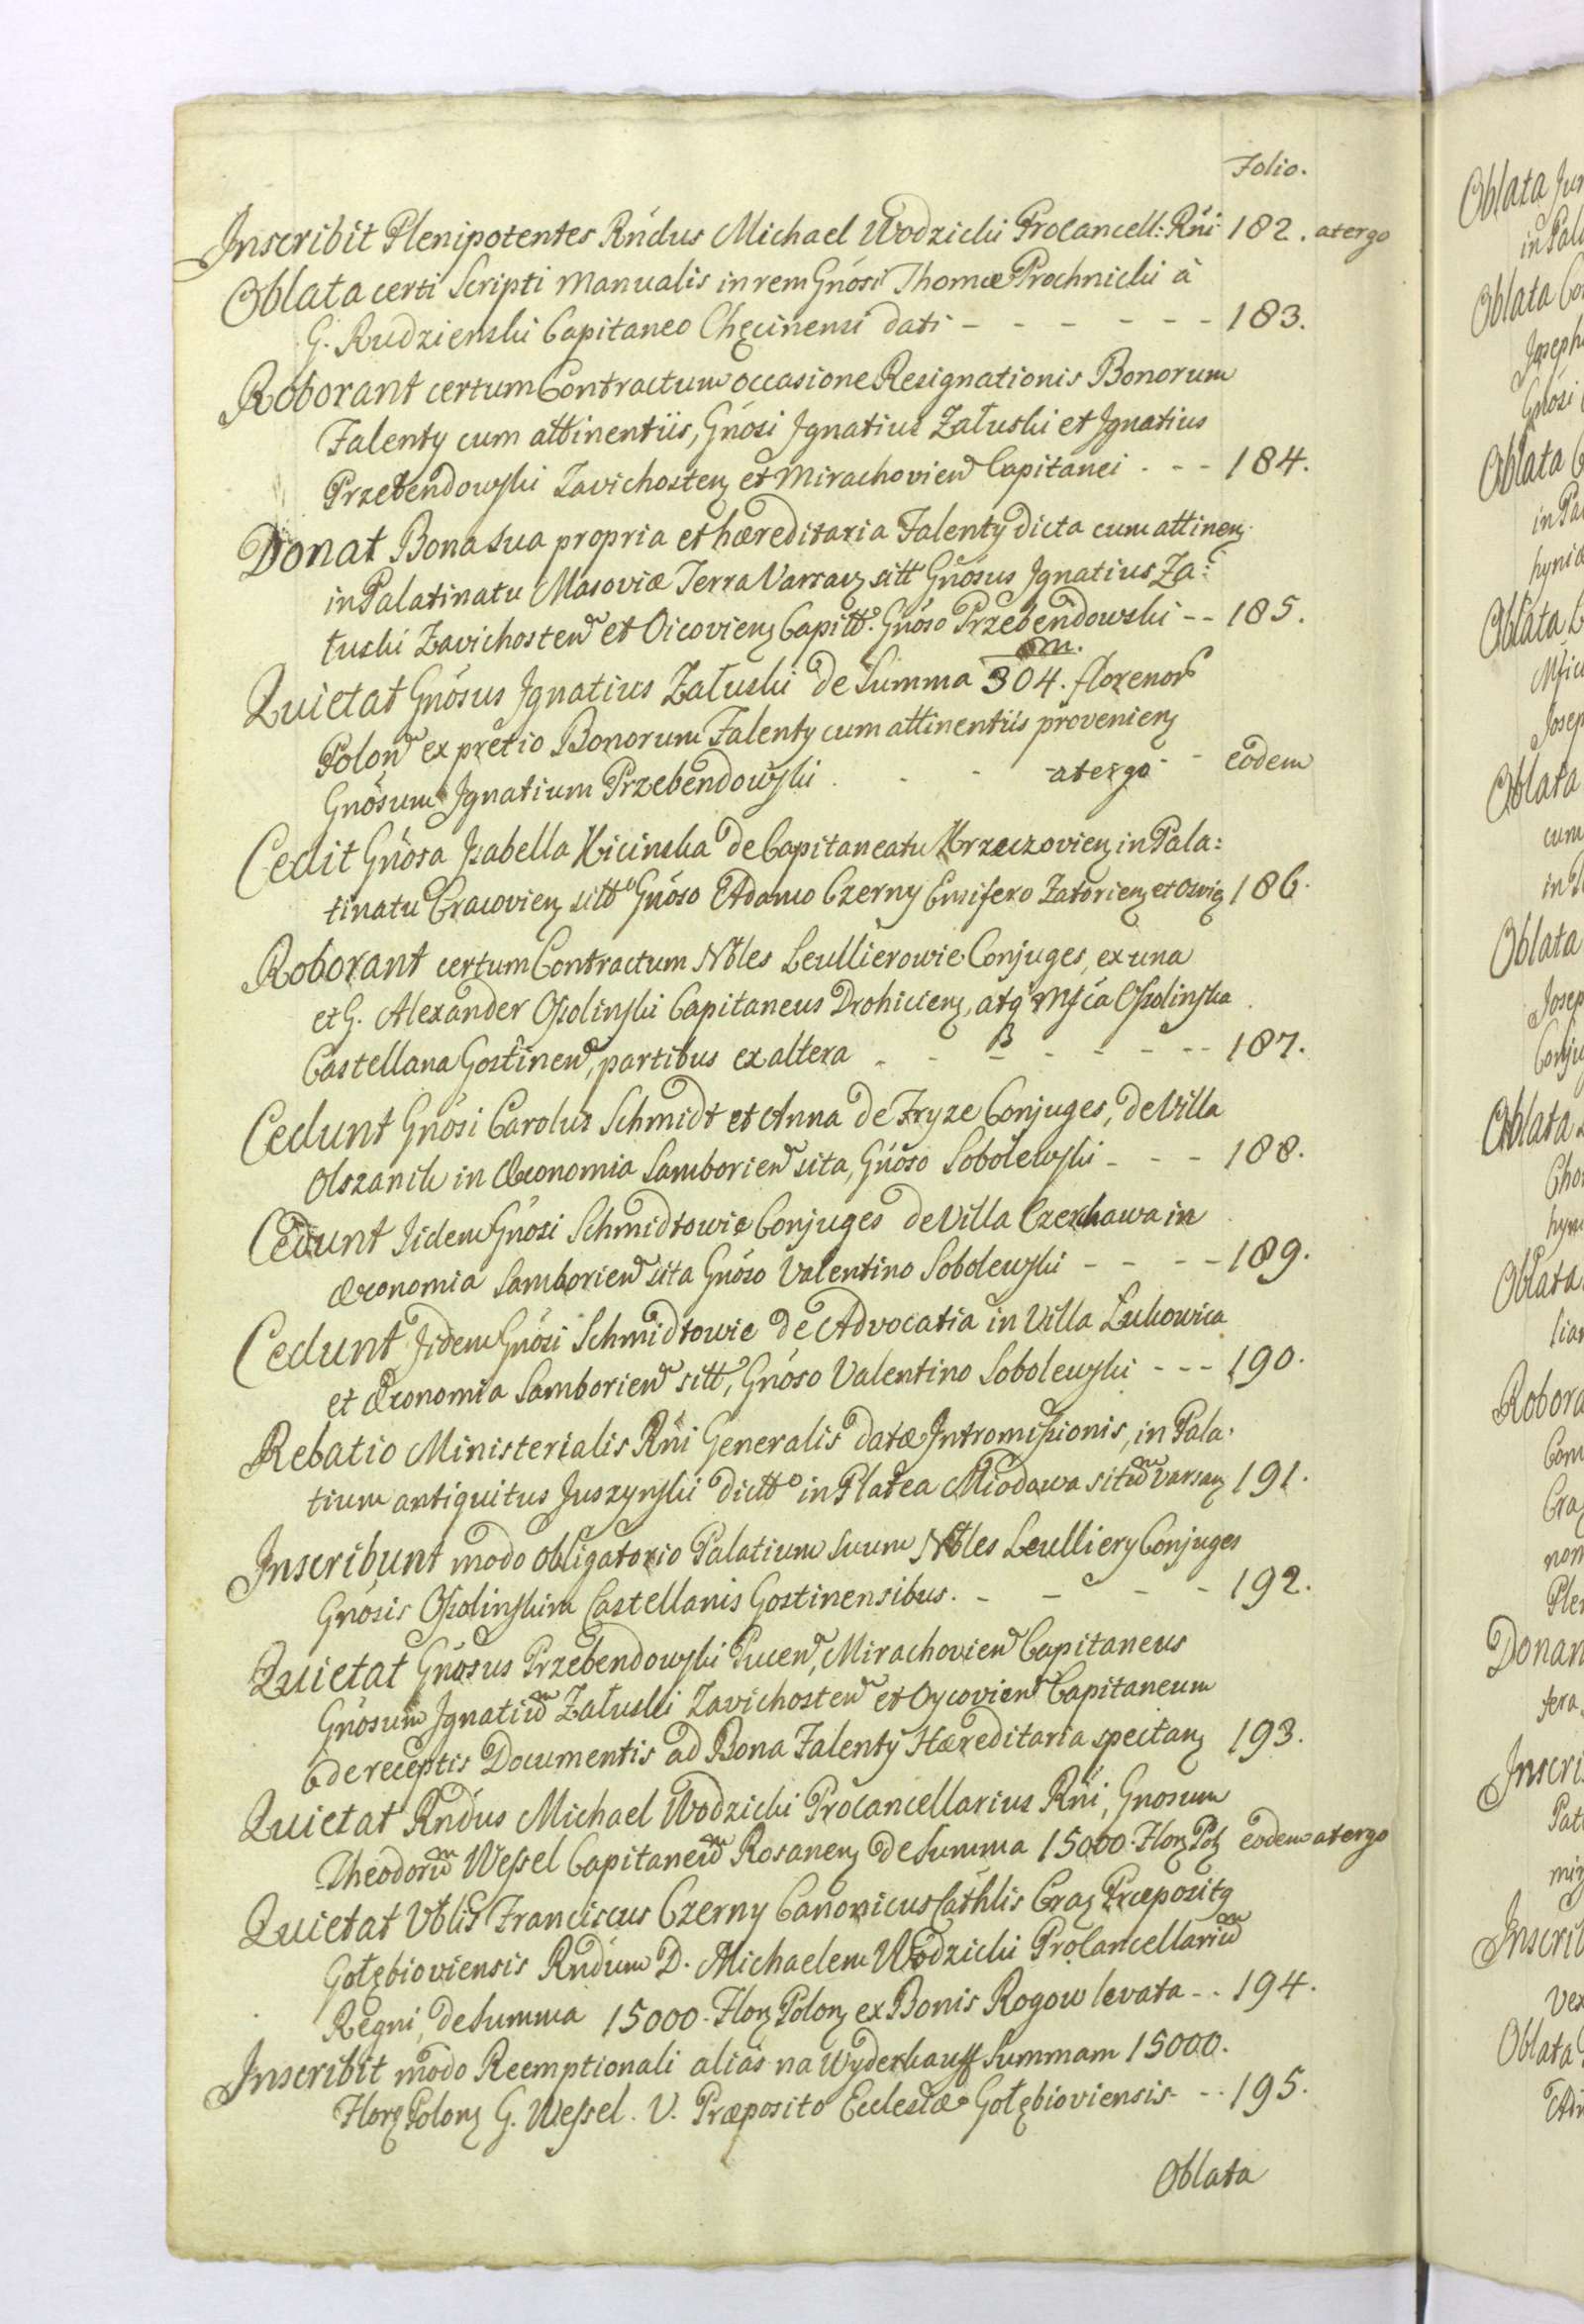 Folio.
Inscribit Plenipotentes Rńdus Michael Wodzicki Procancell: Rńi 182. atergo
Oblata certi Scripti Manualis in rem Gńosi Thomæ Prochnicki à
G. Rudzienski Capitaneo Chęcinensi dati - - - - - - 183.
Roborant certum Contractum occasione Resignationis Bonorum
Falenty cum attinentiis, Gńosi Ignatius Załuski et Ignatius
Przebendowski Zavichosteñ et Mirachovieñ Capitanei - - - 184.
Donat Bona sua propria et hæreditaria Falenty dicta cum attineñ.
in Palatinatu Masoviæ Terra Varsav sitt Gńosus Ignatius Za:
łuski Zavichosteñ et Oicovieñ Capitt. Gńoso Przebendowski - - 185.
Quietat Gńosus Ignatius Załuski de Summa 304.m florenor
Poloñ ex pretio Bonorum Falenty cum attinentiis provenieñ
Gńosum Ignatium Przebendowski - - atergo - - eodem
Cedit Gńosa Isabella Kicinska de Capitaneatu Krzeczovieñ in Pala:
tinatu Cracovieñ sitto Gńoso Adamo Czerny Ensifero Zatorieñ et Oswię 186.
Roborant certum Contractum Nbles Leullierowie Conjuges, ex una
et G. Alexander Ossolinski Capitaneus Drohicieñ, atq Mfica Ossolinska
Castellana Gostineñ, partibus ex altera - - - - - - - 187.
Cedunt Gńosi Carolus Schmidt et Anna de Fryze Conjuges, de Villa
Olszanik in Œconomia Samborieñ sita, Gńoso Sobolewski - - - 188.
Cedunt Iidem Gńosi Schmidtowie Conjuges de Villa Czerhawa in
Œconomia Samborieñ sita Gńoso Valentino Sobolewski - - - - 189.
Cedunt Iidem Gńosi Schmidtowie de Advocatia in Villa Lukowica
et Œconomia Samborieñ sitt, Gńoso Valentino Sobolewski - - - 190.
Relatio Ministerialis Rńi Generalis datæ Intromissionis, in Pala:
tium antiquitus Juszynski dictto in Platea Miodowa situm Varsav 191.
Inscribunt modo obligatorio Palatium suum Nbles Leulliery Conjuges
Gńosis Ossolinskim Castellanis Gostinensibus. - - - - 192.
Quietat Gńosus Przebendowski Puceñ, Mirachovieñ Capitaneus
Gńosum Ignatium Załuski Zavichosteñ et Oycovieñ Capitaneum
de receptis Documentis ad Bona Falenty Hæreditaria spectañ 193.
Quietat Rńdus Michael Wodzicki Procancellarius Rńi, Gńosum
Theodorum Wessel Capitaneum Rosaneñ de Summa 15000. Flor Pol eodem atergo
Quietat Vblis Franciscus Czerny Canonicus Cathlis Crac Præpositq
Gołębioviensis Rńdum D. Michaelem Wodzicki Procancellarium
Regni, de Summa 15000. Flor Polon ex Bonis Rogow levata - - 194.
Inscribit modo Reemptionali aliàs na Wyderkauff Summam 15000.
Flor Polon G. Wessel. V. Præposito Ecclesiæ Gołębioviensis - - 195.
Oblata